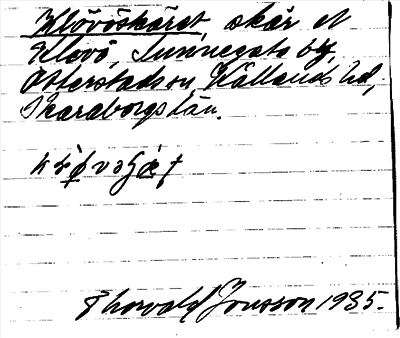 Klövöskäret, skär et
Klovö, Sunnegata by,
Otterstads sn, Kållands hd,
Skaraborgs län.
Thorvald Jonsson 1935.